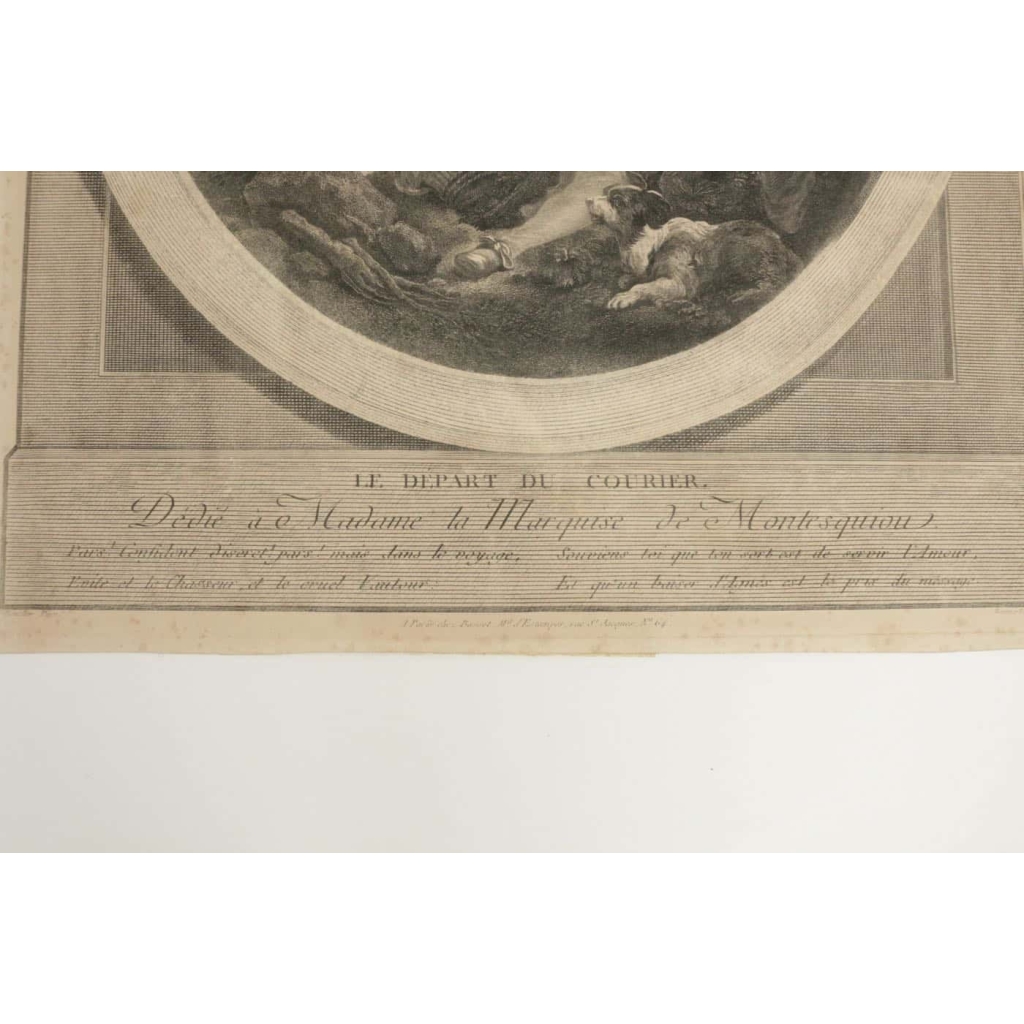 LE DÉPART DU COURIER.
Dédié à Madame la Marquise de Montesquiou
Pars! Confident discret! pars! mais dans le voyage, Souviens toi que ton sort est de servir l'Amour,
Evite et le Chasseur, et le cruel Vautour: Et qu'un baiser d'Agnès est le prix du message
A Paris chez Md. d'Estampes, rue St. Jacques, No. 64